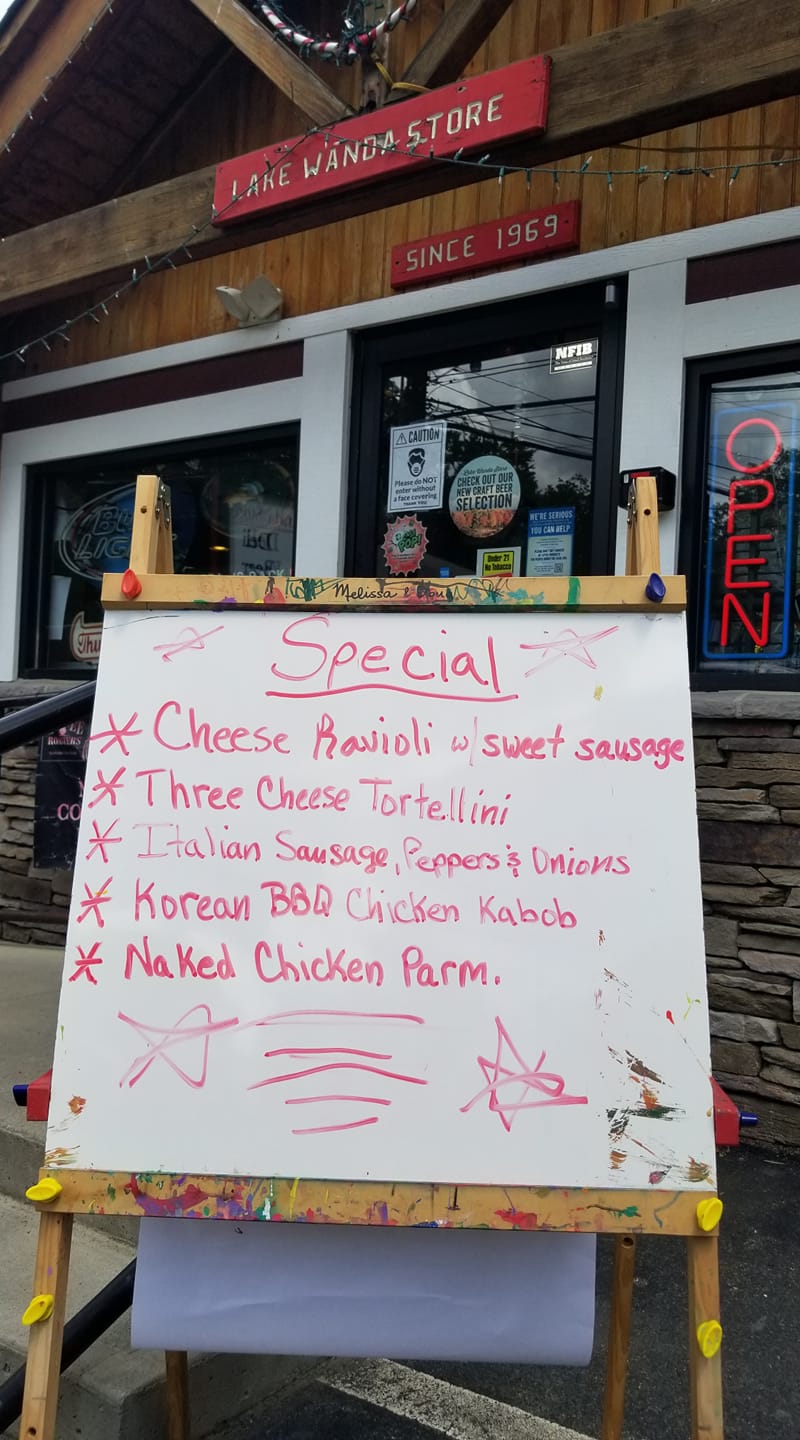 LAKE WANDA STORE
SINCE 1969
NFIB
CAUTION
Please do NOT
enter without
a face covering
THANK YOU
Lake Wanda Store
CHECK OUT OUR
NEW CRAFT BEER
SELECTION
WE'RE SERIOUS
YOU CAN HELP
Under 21
No Tobacco
BUD
LIGHT
Deli
Beer
OPEN
Melissa &
Special
* Cheese Ravioli w/ sweet sausage
* Three Cheese Tortellini
* Italian Sausage, Peppers & Onions
* Korean BBQ Chicken Kabob
* Naked Chicken Parm.